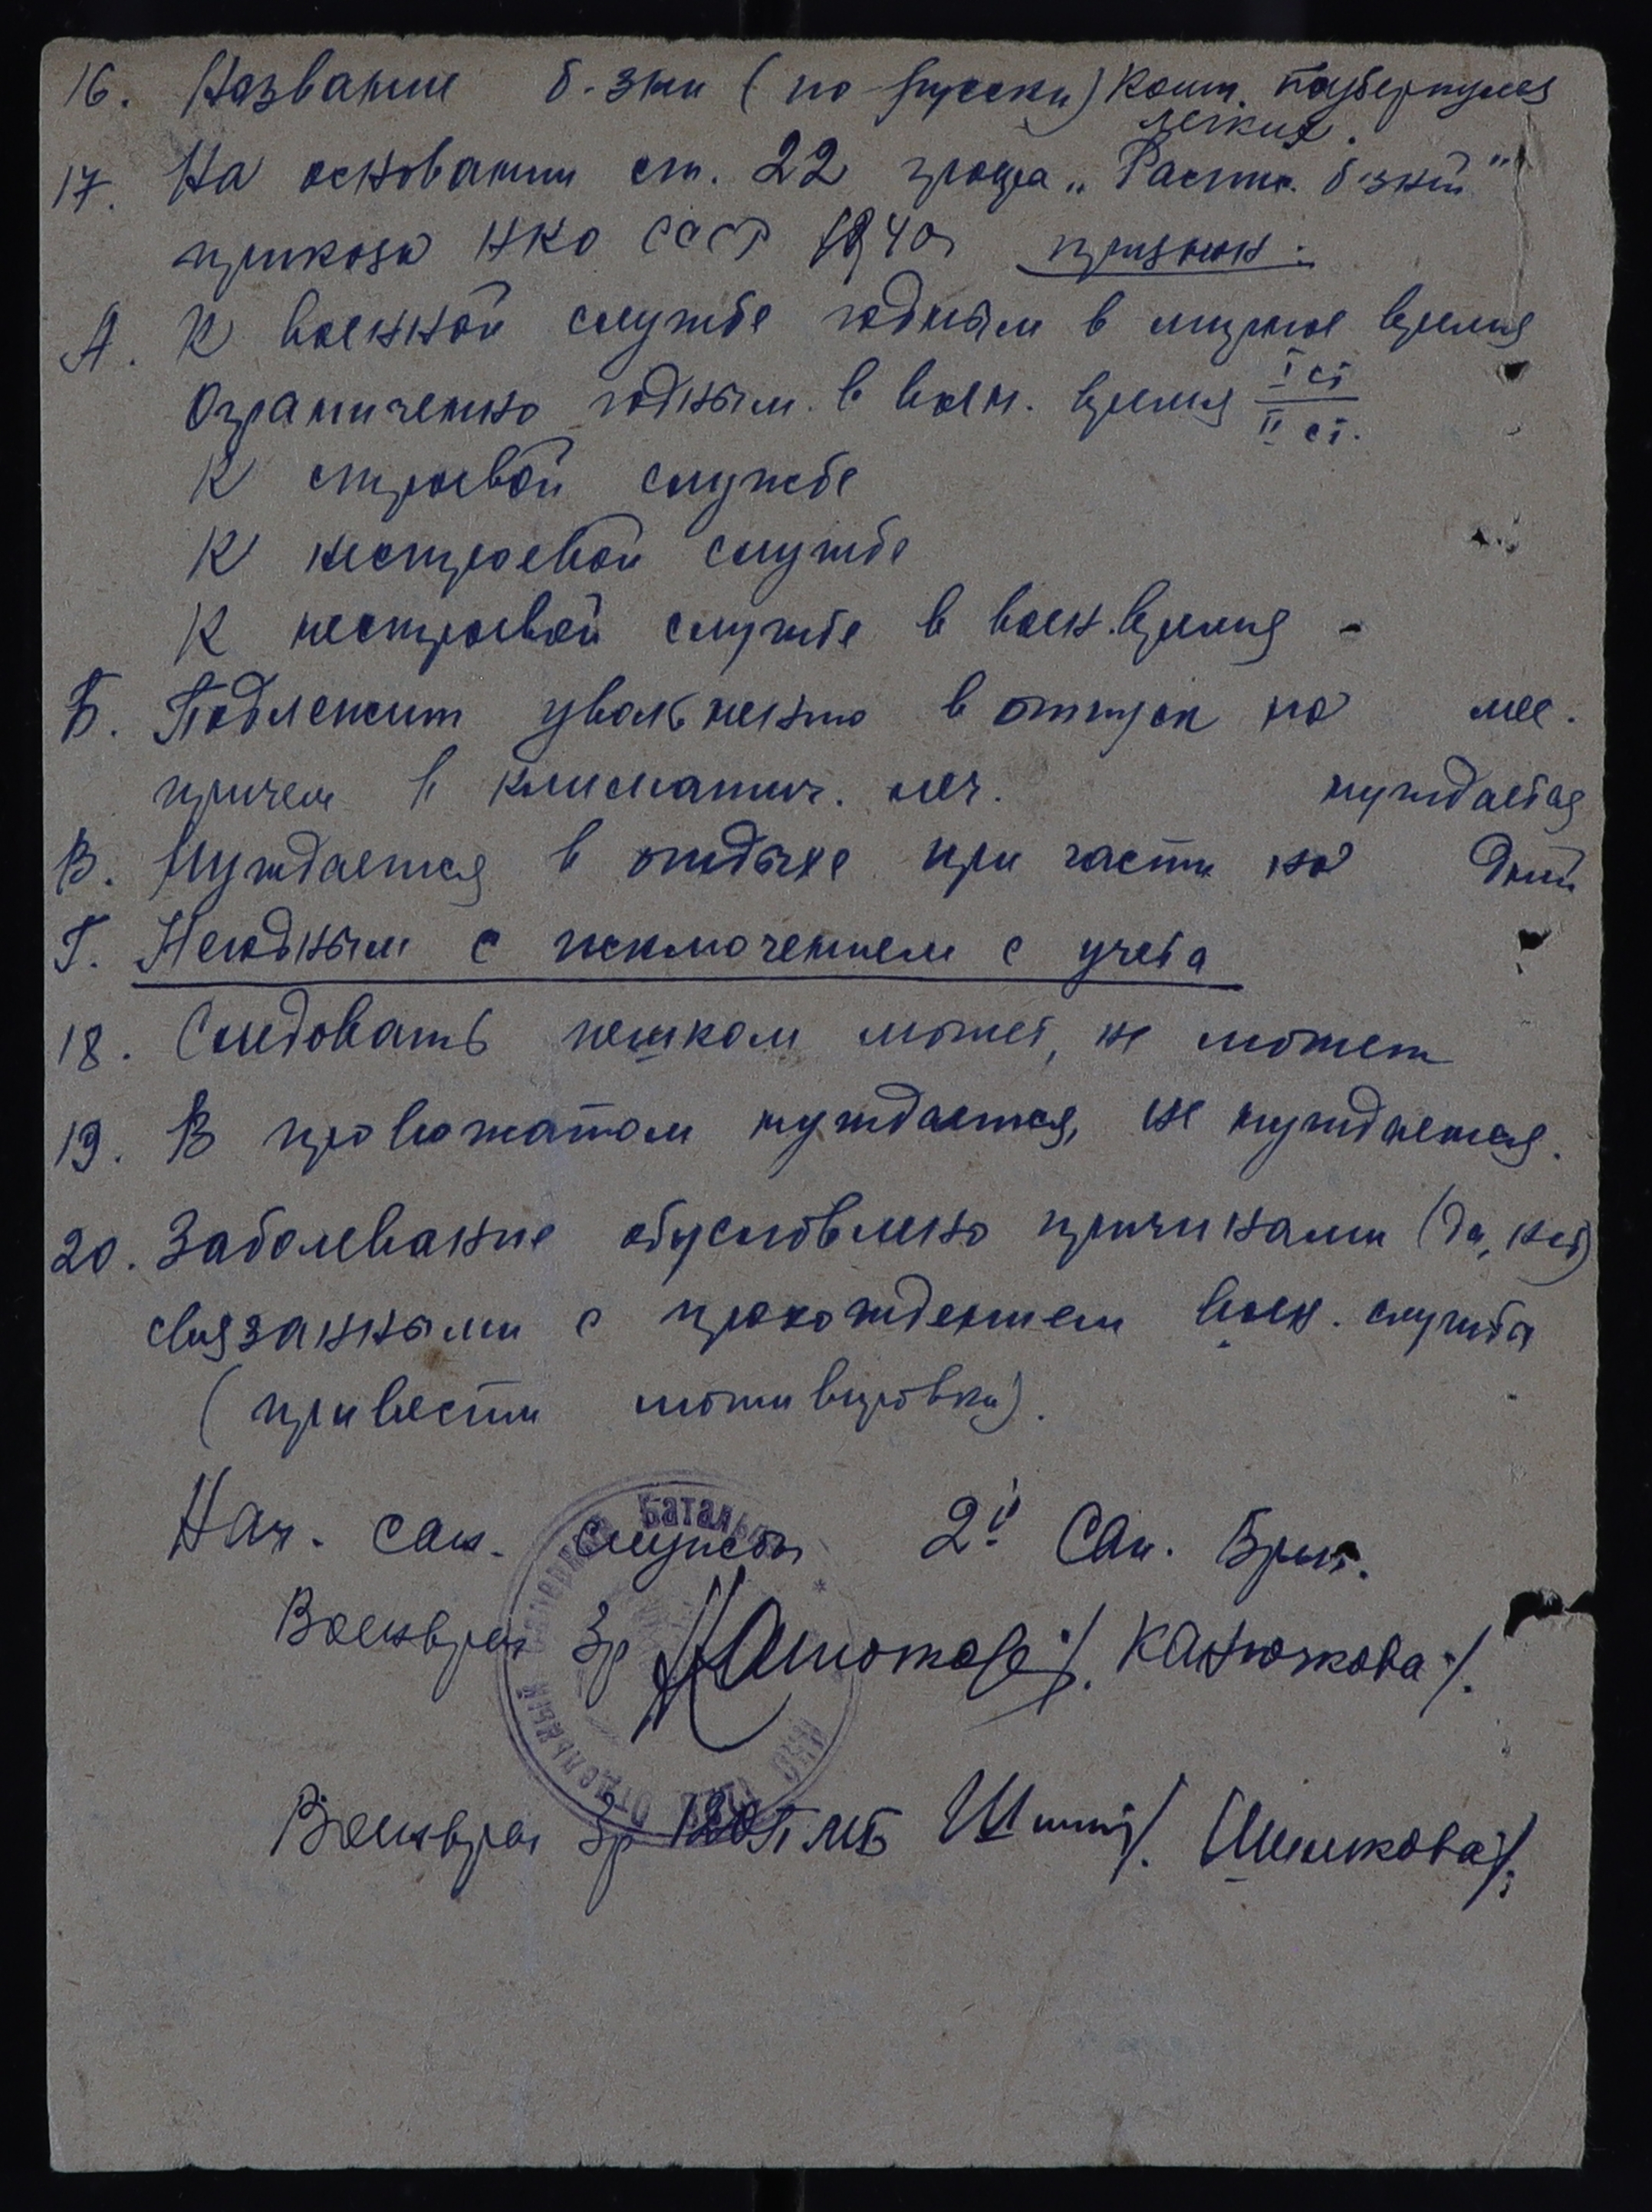 16. Название б-зни (по русски) Комп. туберкулез
легких.
17. На основании ст. 22 графа „Распис. б-зней"
приказа НКО СССР 1940г признан:
А. К военной службе годным в мирное время
Ограниченно годным в воен. время I ст
II ст.
К строевой службе
К нестроевой службе
К нестроевой службе в воен. время -
Б. Подлежит увольнению в отпуск на мес.
причем в климатич. леч. нуждается
В. Нуждается в отдыхе при части на дней
Г. Негодным с исключением с учета
18. Следовать пешком может, не может
19. В провожатом нуждается, не нуждается.
20. Заболевание обусловлено причинами (да, нет)
связанными с прохождением воен. службы
(привести мотивировки).
Нач. сан. службы 2й Сан. Бриг.
Военврач 3р /Канюжкова/.
Военврач 3р МБ /Шишкова/.
Отдельный Батальон НКО